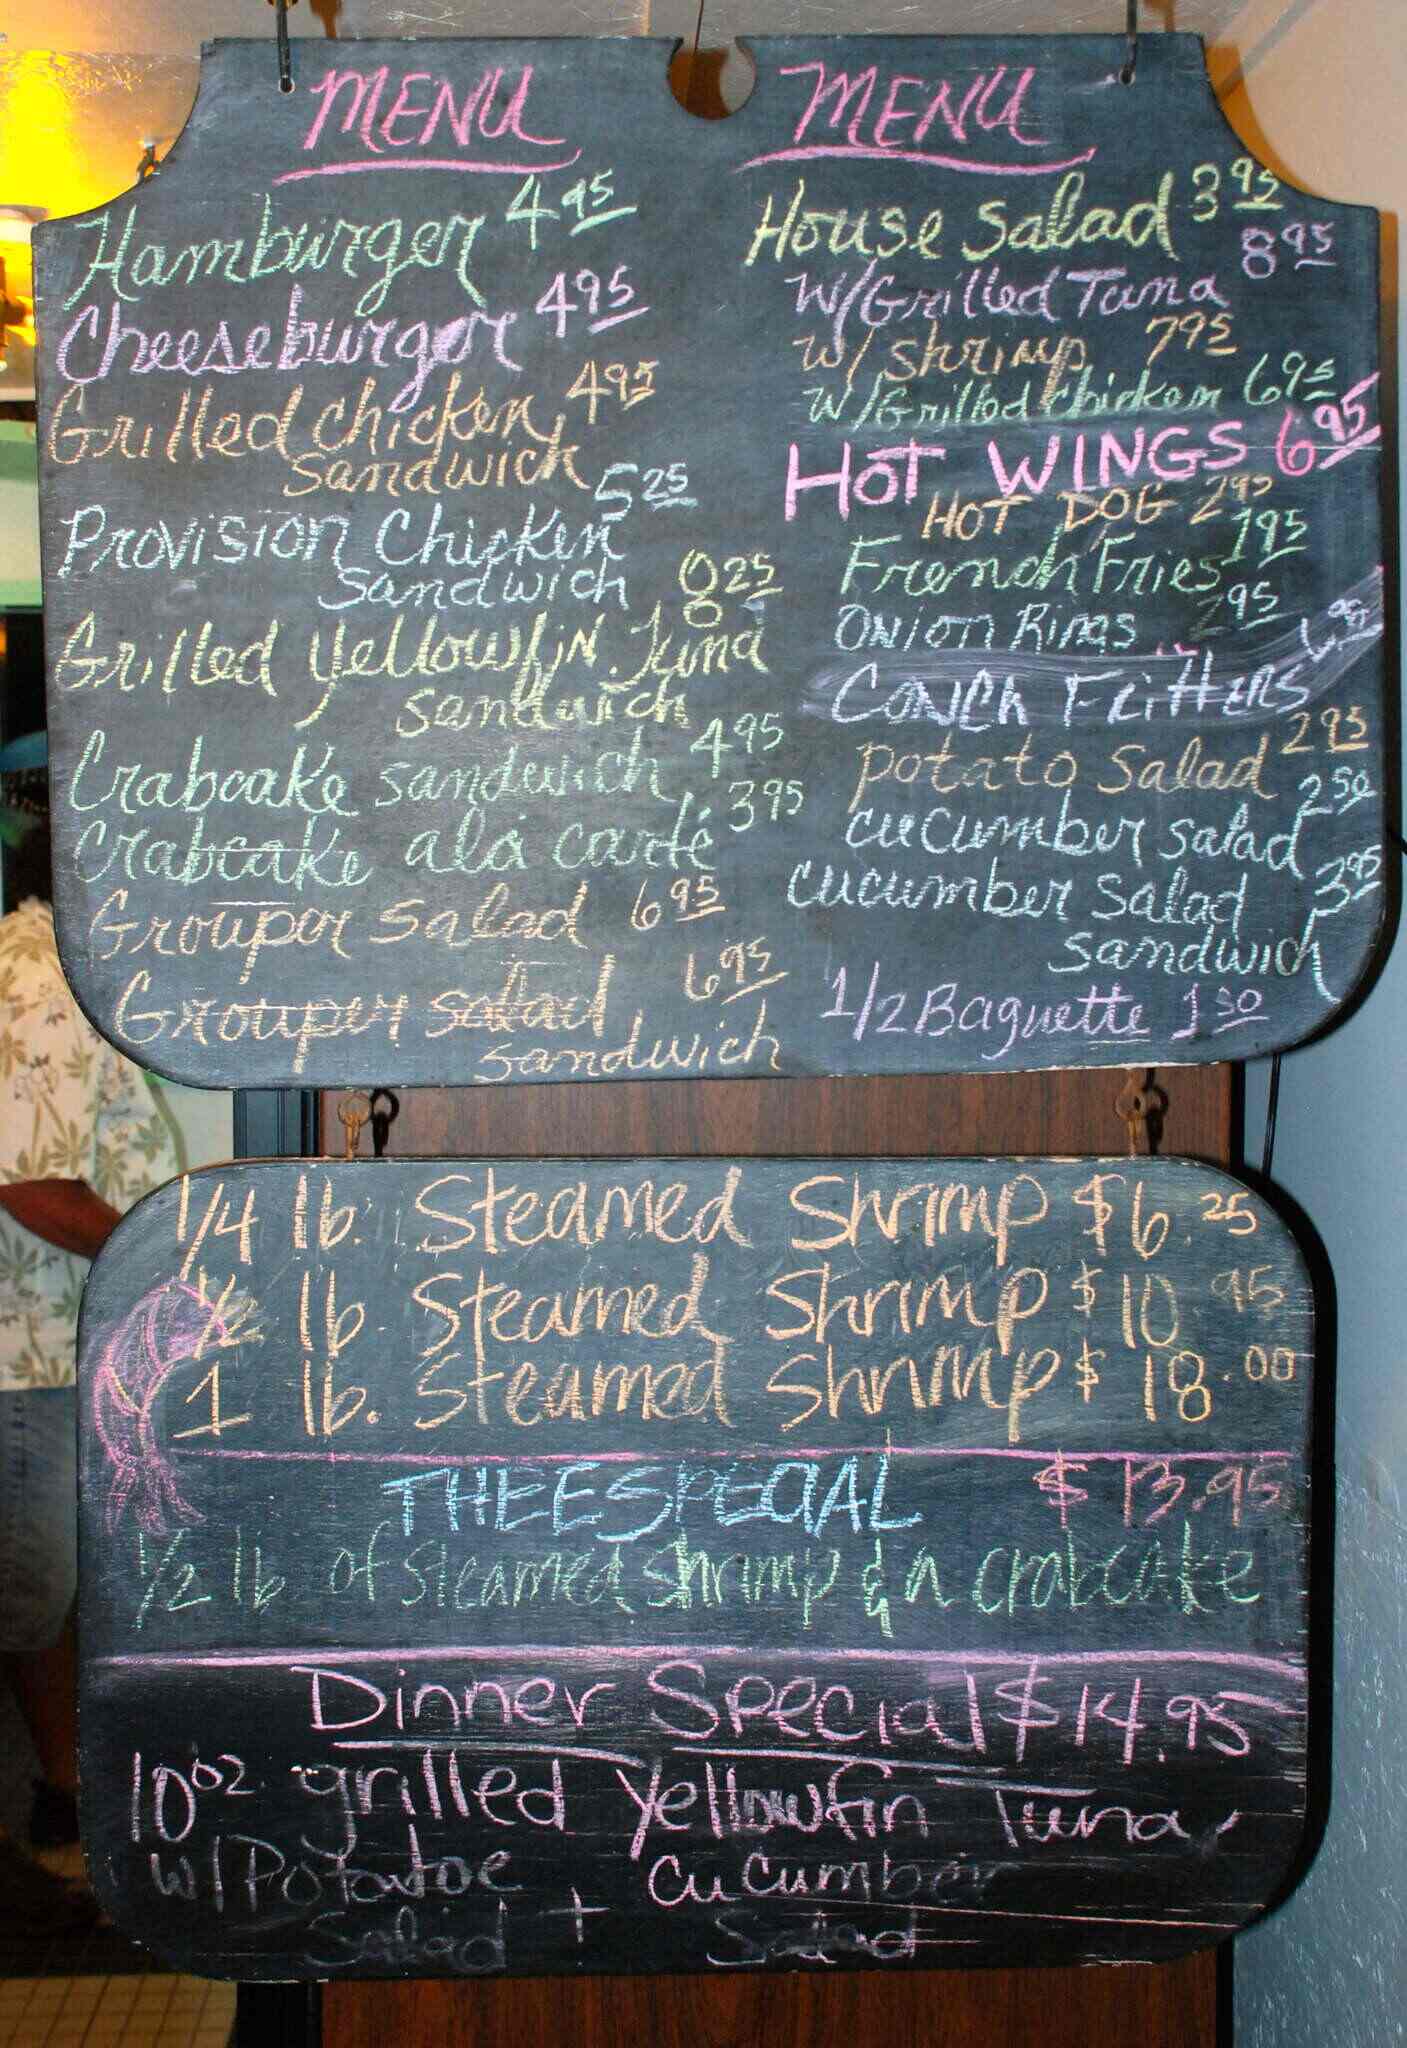 MENU
Hamburger 4.95
Cheeseburger 4.95
Grilled chicken 4.95
sandwich
Provision Chicken 5.25
sandwich
Grilled Yellowfin Tuna 8.25
sandwich
Crabcake sandwich 4.95
Crabcake alá carté 3.95
Grouper Salad 6.95
Grouper salad 6.95
sandwich
MENU
House Salad 3.95
W/Grilled Tuna 8.95
W/ Shrimp 7.95
W/Grilled Chicken 6.95
HOT WINGS 6.95
HOT DOG 2.95
French Fries 1.95
Onion Rings 2.95
Conch Fritters 6.95
potato Salad 2.95
cucumber salad 2.50
cucumber Salad 3.95
sandwich
1/2 Baguette 1.50
1/4 lb. Steamed Shrimp $6.25
1/2 lb. Steamed Shrimp $10.95
1 lb. Steamed Shrimp $18.00
THEE SPECIAL $13.95
1/2 lb of Steamed Shrimp & a crabcake
Dinner Special $14.95
10 oz. grilled Yellowfin Tuna,
w/ Potatoe cucumber
Salad + Salad